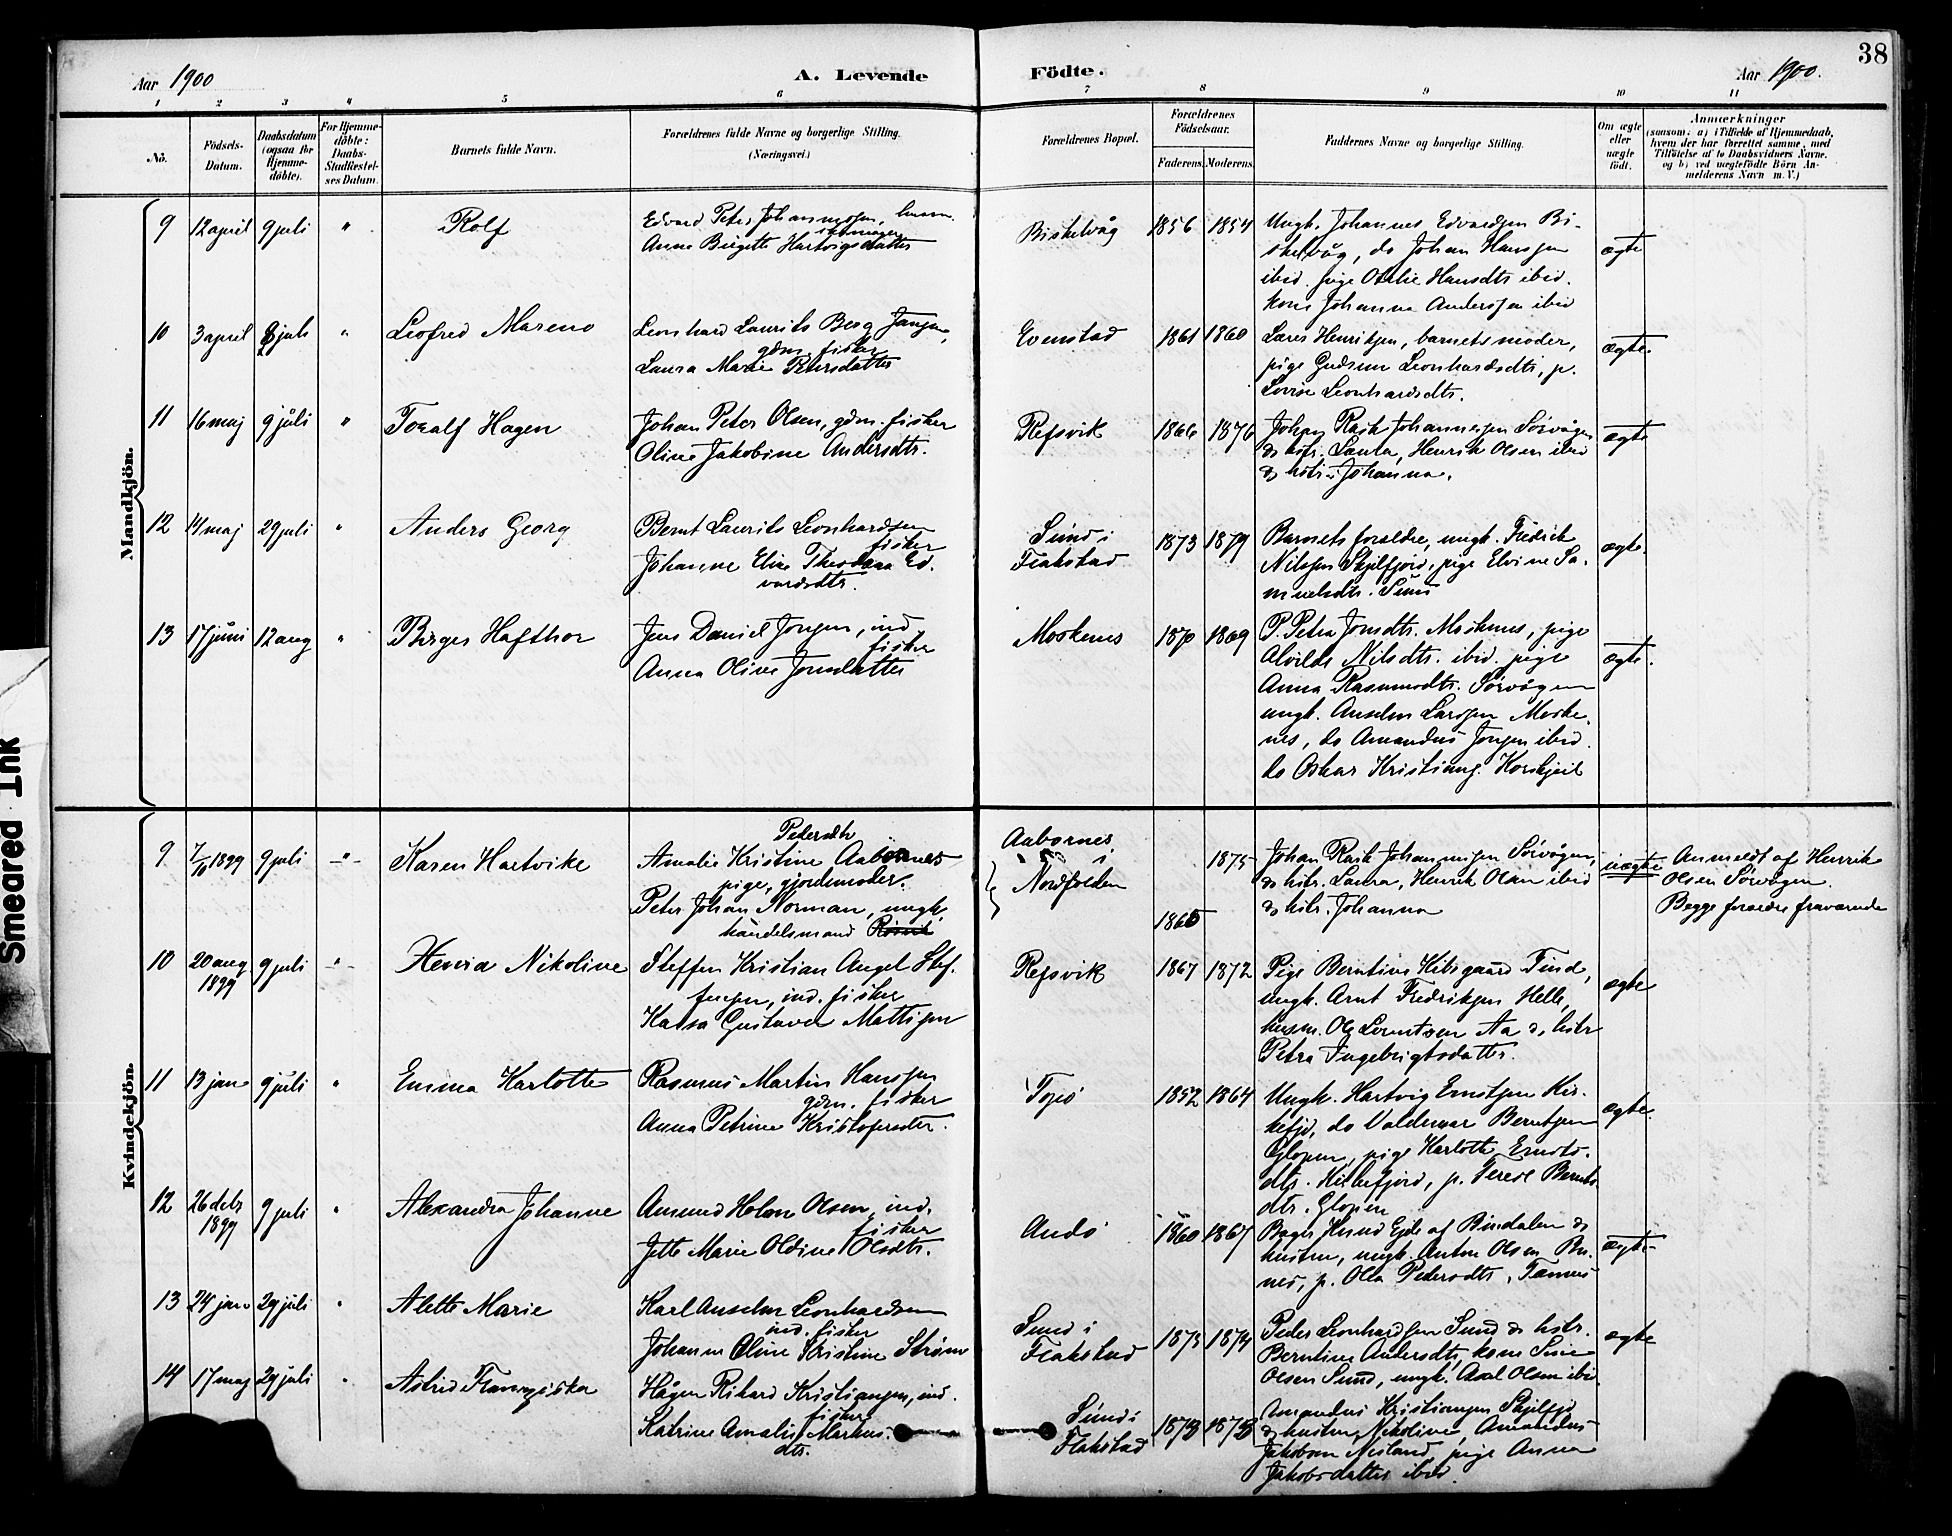 38
Aar 1900
A. Levende Födte.
Aar 1900.
1 2 3 4 5 6 7 8 9 10 11
No.
Födsels-Datum.
Daabsdatum (ogsaa for Hjemme-döbte).
For Hjemme-döbte: Daabs-Stadfæstel-ses Datum.
Barnets fulde Navn.
Forældrenes fulde Navne og borgerlige Stilling.
(Næringsvei.)
Forældrenes Bopæl.
Forældrenes Födselsaar.
Faderens. Moderens.
Faddernes Navne og borgerlige Stilling.
Om ægte eller uægte födt.
Anmærkninger
(saasom: a) i Tilfælde af Hjemmedaab,
hvem der har forrettet samme, med
Tilföielse af to Daabsvidners Navne,
og b) ved uægtefödte Börn An-
melderens Navn m. V.)
Mandkjön.
9 12 april 9 juli " Rolf
Edvard Peter Johannessen, husm.
skomager
Anne Birgitte Hartvigsdatter
Biskelvåg 1856 1854
Ungk. Johannes Edvardsen Bi-
skelvåg, do Johan Hanssen
ibid. pige Otilie Hansdtr ibid.
kone Johanna Anderssen ibid
ægte
10 3 april juli " Leofred Mareno
Leonhard Laurits Berg Jansen,
gdm. fisker
Laura Marie Petersdatter
Evenstad 1861 1860
Lærer Henriksen, barnets moder,
pige Gudrun Leonhardsdtr, p.
Lovise Leonhardsdtr.
ægte.
11 16 maj 9 juli " Toralf Hagen
Johan Peter Olsen, gdm. fisker
Oline Jakobine Andersdtr.
Refsvik 1866 1876
Johan Rask Johannessen Sörvågen
& hstr. Laura, Henrik Olsen ibid
& hstr. Johanna.
ægte
12 14 maj 29 juli " Anders Georg
Bernt Laurits Leonhardsen
fisker
Johanne Elise Theodora Ed-
vardsdtr.
Sund i
Flakstad 1873 1879
Barnets forældre, ungk. Fredrik
Nilssen Skjelfjord, pige Elvine Sa-
muelsdtr. Sund
ægte.
13 17 juni 12 aug " Birger Hafthor
Jens Daniel Jonsen, ind
fisker
Anna Oline Jonsdatter
Moskenes 1870 1869
P. Petra Jonsdtr. Moskenes, pige
Alvilde Nilsdtr. ibid. pige
Anna Rasmusdtr. Sörvågen
ungk. Anselm Larssen Moske-
nes, do Amandus Jonsen ibid.
do Oskar Kristians.
ægte.
Kvindekjön.
9 1899 9 juli -"- Karen Hartvike
Pedersdtr
Amalie Kristine Aabornes
pige, gjordemoder.
Peter Johan Norman, ungk.
handelsmand
Aabornes,
i
Nordfolden
1875
1865
Johan Rask Johannessen Sörvågen,
& hstr. Laura, Henrik Olsen ibid
& hstr. Johanna
uægte
Anmeldt af Henrik
Olsen Sörvågen.
Begge forældre fraværende
10 20 aug 1899 9 juli -"- Henria Nikoline
Steffen Kristian Angel Stef-
fensen, ind. fisker
Kaisa Gustava Mattisen
Refsvik 1867 1872
Pige Berntine Kibsgaard Tind,
ungk. Arnt Fredriksen Helle,
husm. Ole Lorentzen Aa & hstr
Petra Ingebrigtsdatter.
ægte
11 13 jan 9 juli " Emma Karlotte
Rasmus Martin Hanssen
gdm. fisker
Anna Petrine Kristofersdtr.
Topö 1852 1864
Ungk. Hartvig Ernstsen Kir-
kefjd, do Valdemar Berntsen
Glopen, pige Karlotte Ernsts-
dtr. Kirkefjord, p. Terese Bernts-
dtr. Glopen
ægte.
12 26 debr 1899 9 juli " Alexandra Johanne
Amund Holm Olsen, ind.
fisker
Jette Marie Oldine Olsdtr.
Andö 1860 1867
Bager Knud Eide af Bindalen &
hustru, ungk. Anton Olsen Bu-
nes, p. Olla Pedersdtr,
ægte
13 24 jan 29 juli " Alette Marie
Karl Anselm Leonhardsen
ind. fisker
Johanna Oline Kristine Ström
Sund i
Flakstad 1873 1874
Peder Leonhardsen Sund & hstr.
Berntine Andersdtr, kone Sine
Olsen Sund, ungk. Axel Olsen ibid.
ægte
14 17 maj 29 juli " Astrid Franziska
Hågen Rikard Kristiansen, ind.
fisker
Katrine Amalie Markus-
dtr.
Sund i
Flakstad 1873 1873
Amandus Kristiansen Skjelfjd
& hustru Nikoline, Amandus
Jakobsen Nesland, pige Anna
Jakobsdatter ibid.
Smeared Ink